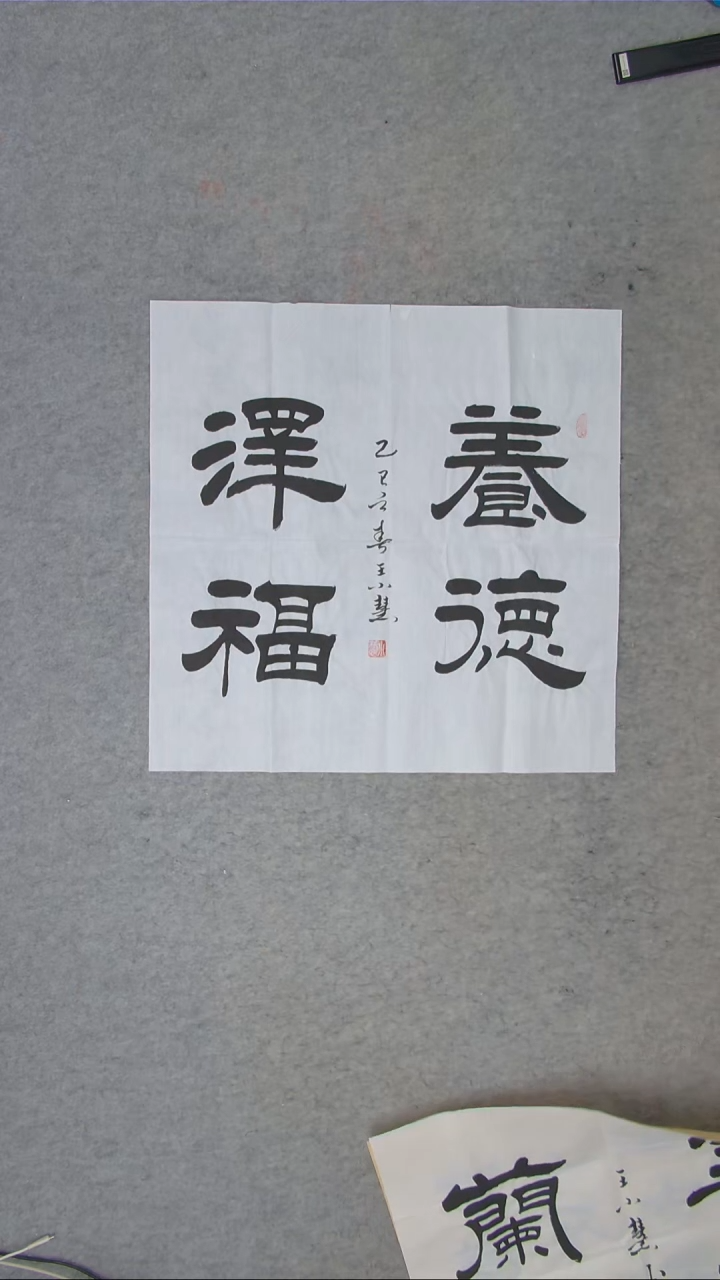 養德
乙巳立春王小慧
澤福
王小慧
蘭